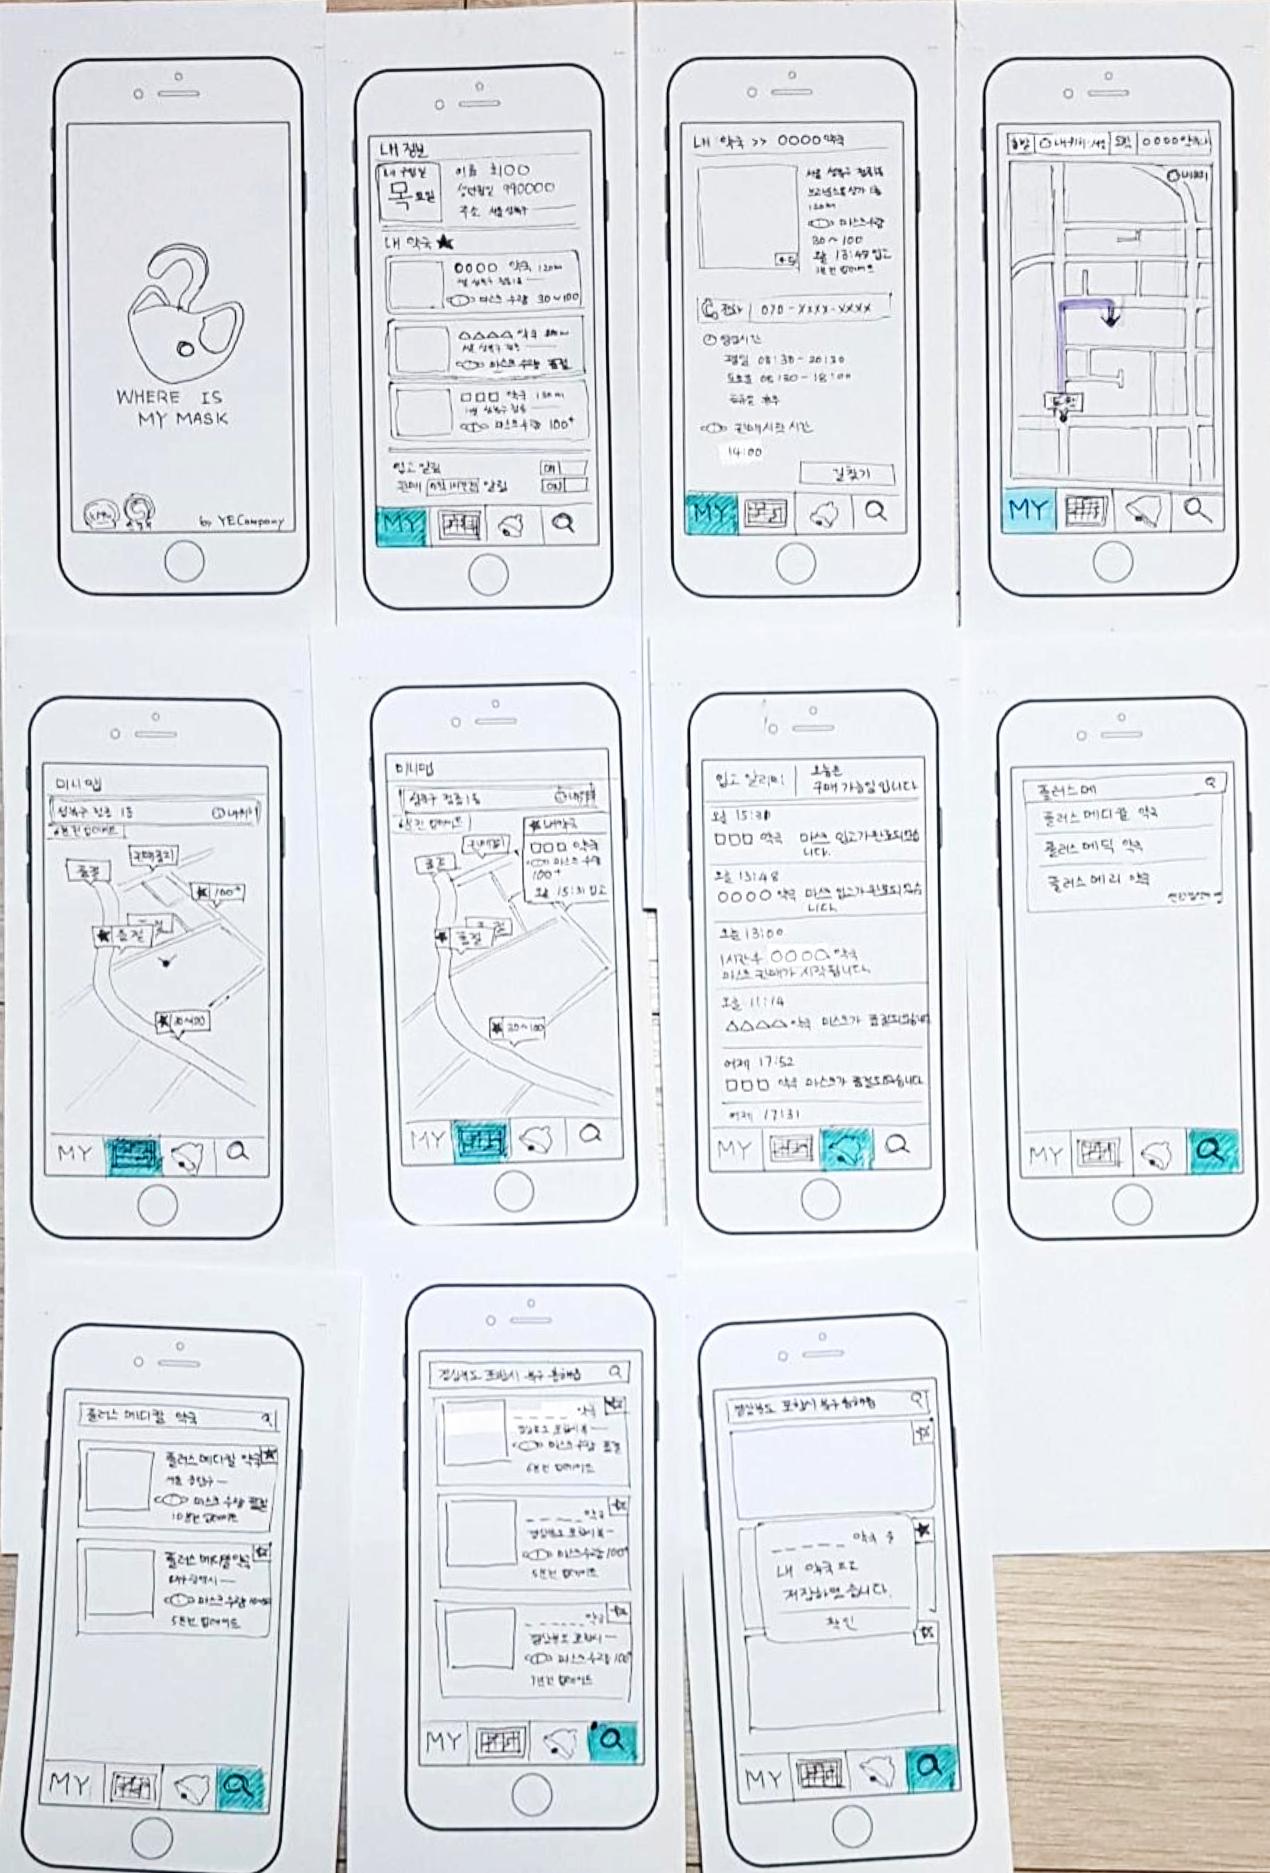 WHERE IS
MY MASK
by YECompany
내 정보
내 구입일
목요일
이름 최OO
생년월일 990000
주소 서울 성북구
내 약국 ★
OOOO 약국 120m
마스크 수량 30~100
△△△△ 약국
마스크 수량 품절
□□□ 약국
마스크 수량 100+
입고 알림 ON
판매 알림 ON
MY
내 약국 >> OOOO약국
서울 성북구
120m
마스크 수량
30~100
오늘 13:48 입고
전화 070-XXXX-XXXX
영업시간
평일 08:30-20:30
토요일 08:30-18:00
일요일 휴무
판매시작 시간
14:00
길찾기
MY
출발 내위치:서울 도착 OOOO약국
도착
MY
미니맵
성북구 정릉1동 내위치
품절
구매중지
★ 100+
★ 품절
★ 30~100
MY
미니맵
성북구 정릉1동
★ 내약국
□□□ 약국
마스크 수량
100+
오늘 15:31 입고
품절
★ 품절
★ 30~100
MY
입고 알리미
오늘은
구매 가능일입니다
오늘 15:31
□□□ 약국 마스크 입고가 완료되었습
니다.
오늘 13:48
OOOO 약국 마스크 입고가 완료되었습
니다.
오늘 13:00
1시간 후 OOOO 약국
마스크 판매가 시작됩니다.
오늘 11:14
△△△△약국 마스크가 품절되었습니다
어제 17:52
□□□ 약국 마스크가 품절되었습니다
어제 17:31
MY
플러스메
플러스 메디칼 약국
플러스 메딕 약국
플러스 메리 약국
MY
플러스 메디칼 약국
플러스 메디칼 약국
마스크 수량 품절
10분전 업데이트
플러스 메디칼 약국
대구광역시
마스크 수량
5분전 업데이트
MY
경상북도 포항시 북구 흥해읍
약국
마스크 수량 품절
6분전 업데이트
약국
경상북도 포항시 북
마스크 수량 100+
5분전 업데이트
약국
경상북도 포항시
마스크 수량 100+
7분전 업데이트
MY
경상북도 포항시 북구 흥해읍
약국 을
내 약국으로
저장하였습니다.
확인
MY